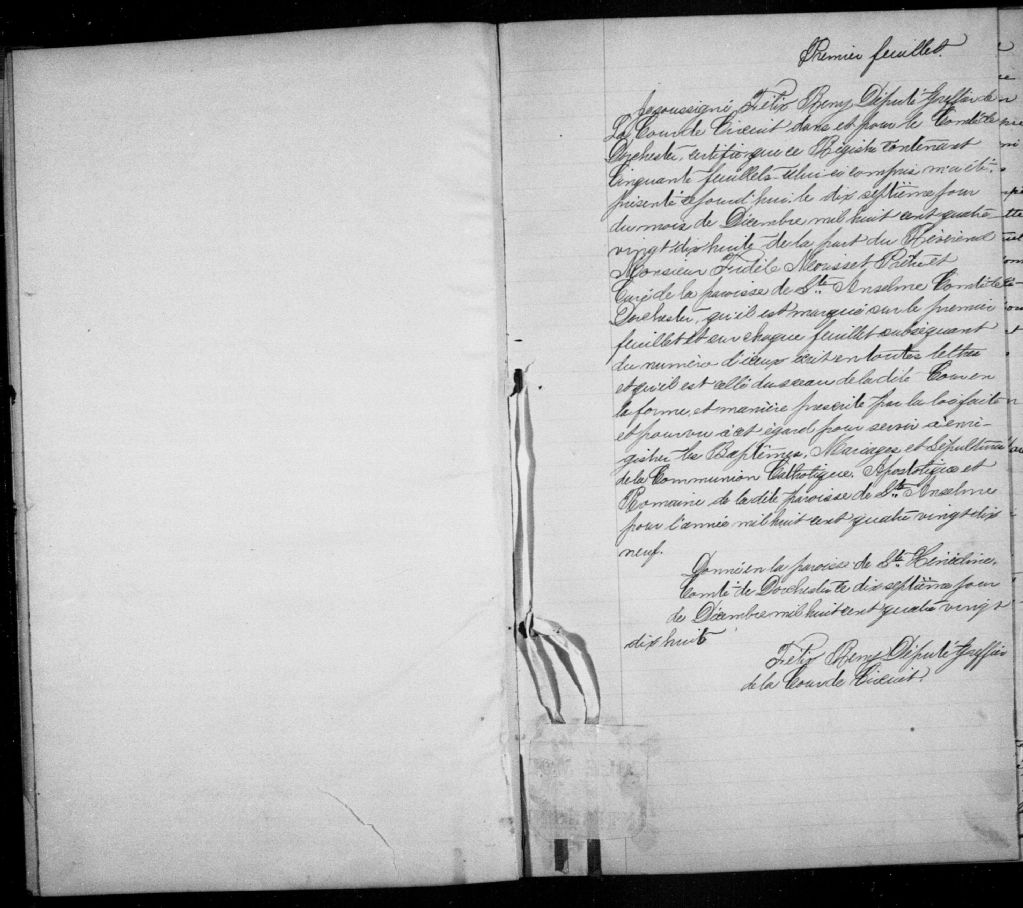 Premier feuillet.
Je soussigné, Félix Remy Député Greffier de
La Cour de Circuit dans et pour le Comté de
Dorchester, certifie que ce Régistre contenant
Cinquante feuillets celui-ci compris m'a été
présenté ce jourd'hui, le dix septième jour
du mois de Décembre mil huit cent quatre
vingt dix huite de la part du Révérend
Monsieur Fidèle Prêtre et
Curé de la paroisse de Ste Anselme Comté de
Dorchester, qu'il est marqué sur le premier
feuillet et sur chaque feuillet subséquant
du numéro d'iceux écrit en toutes lettres
et qu'il est scellé du sceau de la dite Cour en
la forme, et manière prescrite par la loi faite
et pourvu à cet égard pour servir à enré-
gistrer les Baptêmes, Mariages et Sépultures
de la Communion Catholique, Apostolique et
Romaine de la dite paroisse de Ste Anselme
pour l'année mil huit cent quatre vingt dix
neuf.
Donné en la paroisse de Ste Hénédine,
Comté de Dorchester le dix septième jour
de Décembre mil huit cent quatre vingt
dix huit
Félix Remy Député Greffier
de la Cour de Circuit.